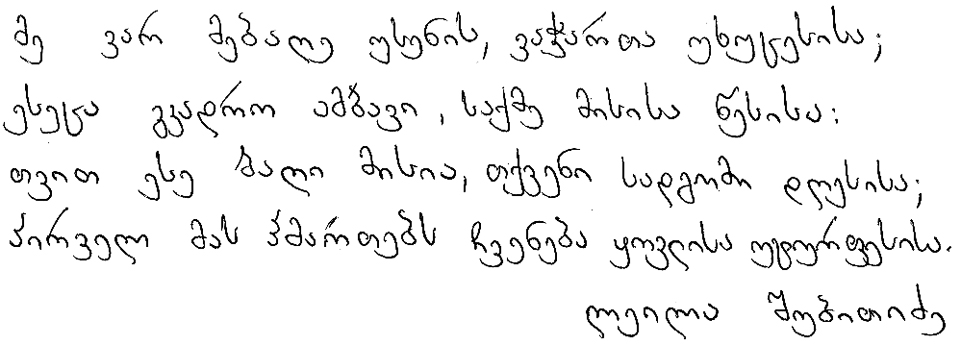 მე ვარ მებაღე უსენის, ვაჭართა უხუცესისა;
ესეცა გკადრო ამბავი, საქმე მისისა წესისა:
თვით ესე ბაღი მისია, თქვენი სადგომი დღესისა;
პირველ მას ჰმართებს ჩვენება ყოვლისა უტურფესისა.
ლეილა შუბითიძე